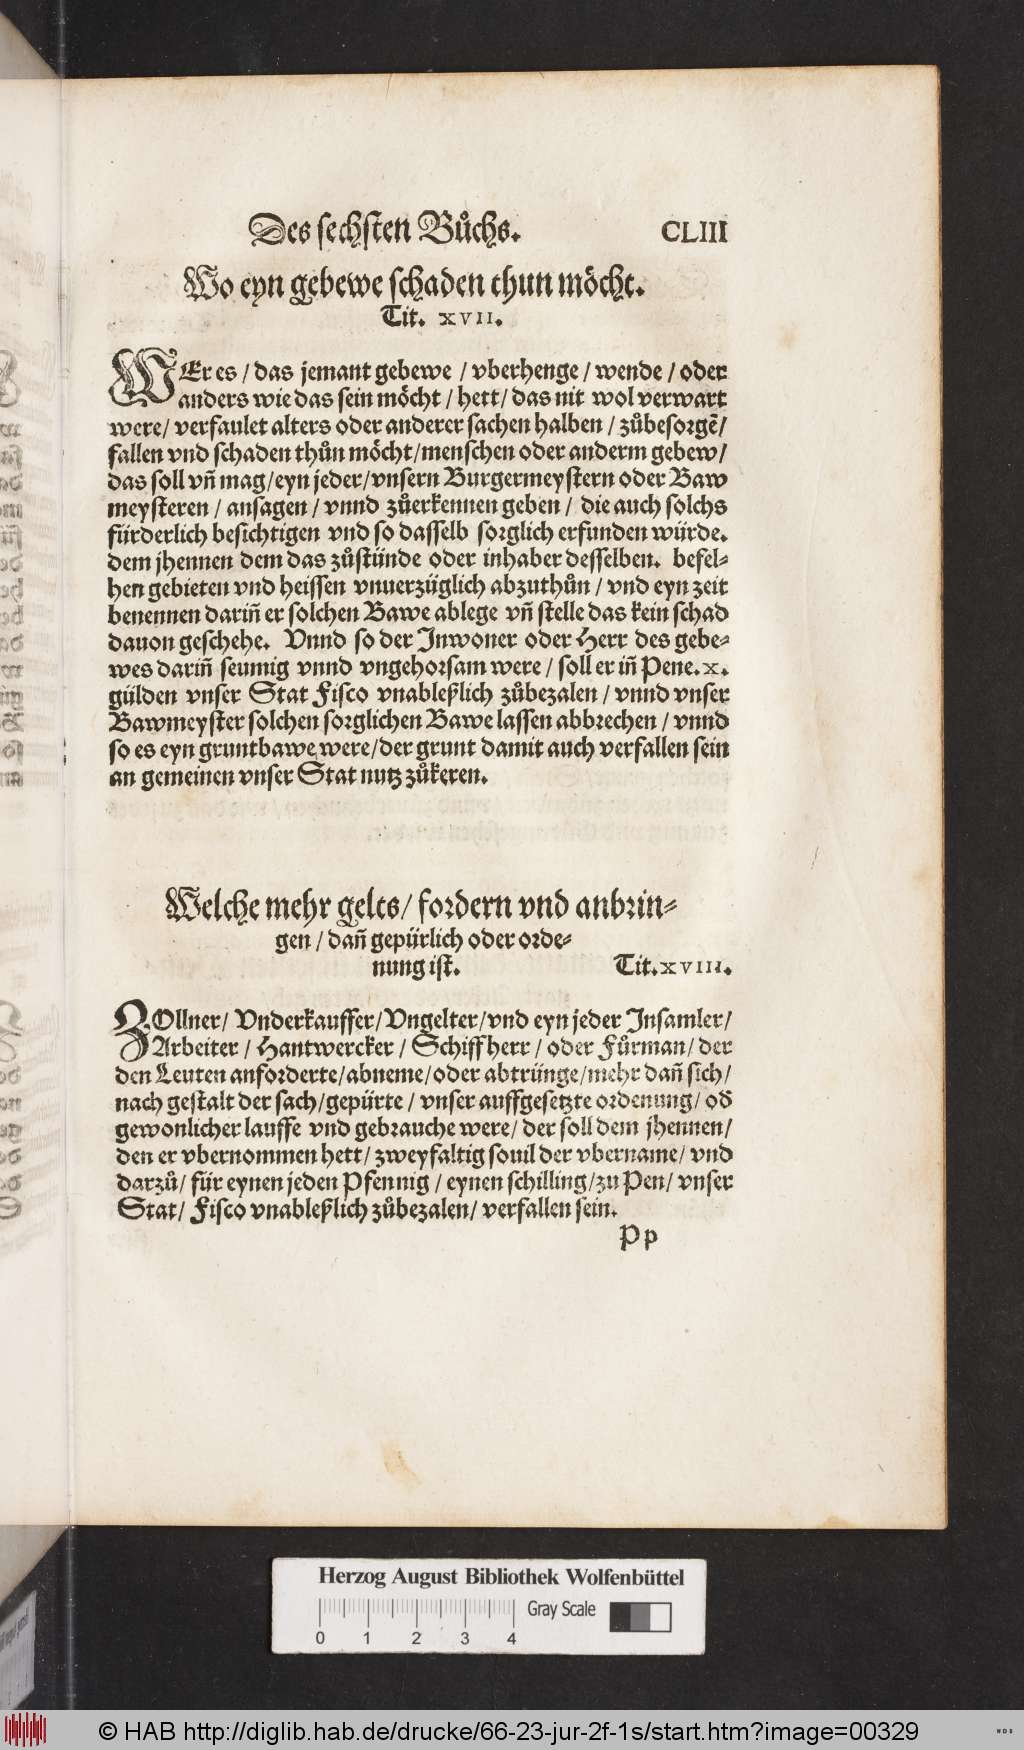 Des sechsten Bůchs. CLIII
Wo eyn gebewe schaden thun mõcht.
Tit. XVII.
WEr es / das jemant gebewe / vberhenge / wende / oder
anders wie das sein mõcht / hett / das nit wol verwart
were / verfaulet alters oder anderer sachen halben / zůbesorgẽ /
fallen vnd schaden thůn mõcht / menschen oder anderm gebew /
das soll vñ mag / eyn jeder / vnsern Burgermeystern oder Baw
meysteren / ansagen / vnnd zůerkennen geben / die auch solchs
fürderlich besichtigen vnd so dasselb sorglich erfunden würde.
dem jhennen dem das zůstünde oder inhaber desselben. befel-
hen gebieten vnd heissen vnuerzüglich abzuthůn / vnd eyn zeit
benennen dariñ er solchen Bawe ablege vñ stelle das kein schad
dauon geschehe. Vnnd so der Inwoner oder Herr des gebe-
wes dariñ seumig vnnd vngehorsam were / soll er iñ Pene. x.
gülden vnser Stat Fisco vnableßlich zůbezalen / vnnd vnser
Bawmeyster solchen sorglichen Bawe lassen abbrechen / vnnd
so es eyn gruntbawe were / der grunt damit auch verfallen sein
an gemeinen vnser Stat nutz zůkeren.
Welche mehr gelts / fordern vnd anbrin-
gen / dañ gepürlich oder orde-
nung ist. Tit. XVIII.
ZOllner / Vnderkauffer / Vngelter / vnd eyn jeder Insamler /
Arbeiter / Hantwercker / Schiffherr / oder Fůrman / der
den Leuten anforderte / abneme / oder abtrünge / mehr dañ sich /
nach gestalt der sach / gepürte / vnser auffgesetzte ordenung / od̃
gewonlicher lauffe vnd gebrauche were / der soll dem jhennen /
den er vbernommen hett / zweyfaltig souil der vbername / vnd
darzů / für eynen jeden Pfennig / eynen schilling / zu Pen / vnser
Stat / Fisco vnableßlich zůbezalen / verfallen sein.
Pp
Herzog August Bibliothek Wolfenbüttel
Gray Scale
0 1 2 3 4
© HAB http://diglib.hab.de/drucke/66-23-jur-2f-1s/start.htm?image=00329